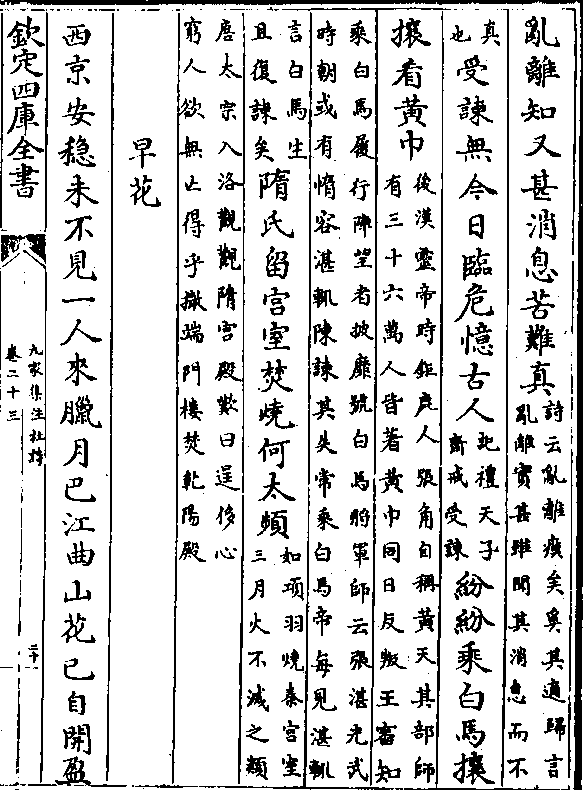 亂離知又甚消息苦難真詩云亂離瘼矣奚其適歸言亂離實甚雖聞其消息而不
真也受諫無今日臨危憶古人記禮天子齋戒受諫紛紛乘白馬攘
攘看黃巾後漢靈帝時鉅鹿人張角自稱黃天其部師有三十六萬人皆著黃巾同日反叛王審知
乘白馬履行陣望者披靡號白馬將軍師云張湛光武時朝或有惰容湛輒陳諫其失常乘白馬帝每見湛輒
言白馬生且復諫矣隋氏留宫室焚燒何太頻如項羽燒秦宫室三月火不滅之類
唐太宗入洛觀觀隋宫殿歎曰逞侈心窮人欲無亡得乎撤端門樓焚乾陽殿
早花
西京安穏未不見一人來臘月巴江曲山花已自開盈
欽定四庫全書
九家集注杜詩
卷二十三
二十一